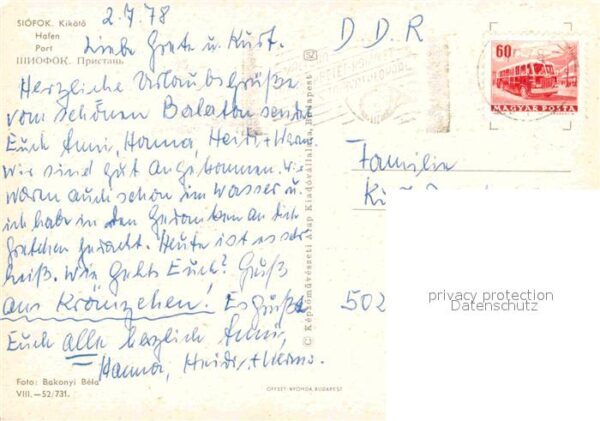 SIÓFOK. Kikötő
Hafen
Port
ШИОФОК. Пристань
2.7.78
Liebe Grete u. Kurt.
Herzliche Urlaubsgrüße
vom schönen Balaton senden
Euch Anni, Hanna, Heidi,
Wir sind gut angekommen. Wir
waren auch schon im Wasser u.
ich habe in den Gedanken an dich
Gretchen gedacht. Heute ist es sehr
heiß. Wie gehts Euch? Gruß
ans Kränzchen! Es grüßt
Euch alle herzlich Anni,
Hanna, Heidi,
Foto: Bakonyi Béla
VIII.—52/731.
OFFSET-NYOMDA BUDAPEST
© Képzőművészeti Alap Kiadóvállalata, Budapest
DDR
60f
MAGYAR POSTA
Familie
502
privacy protection
Datenschutz